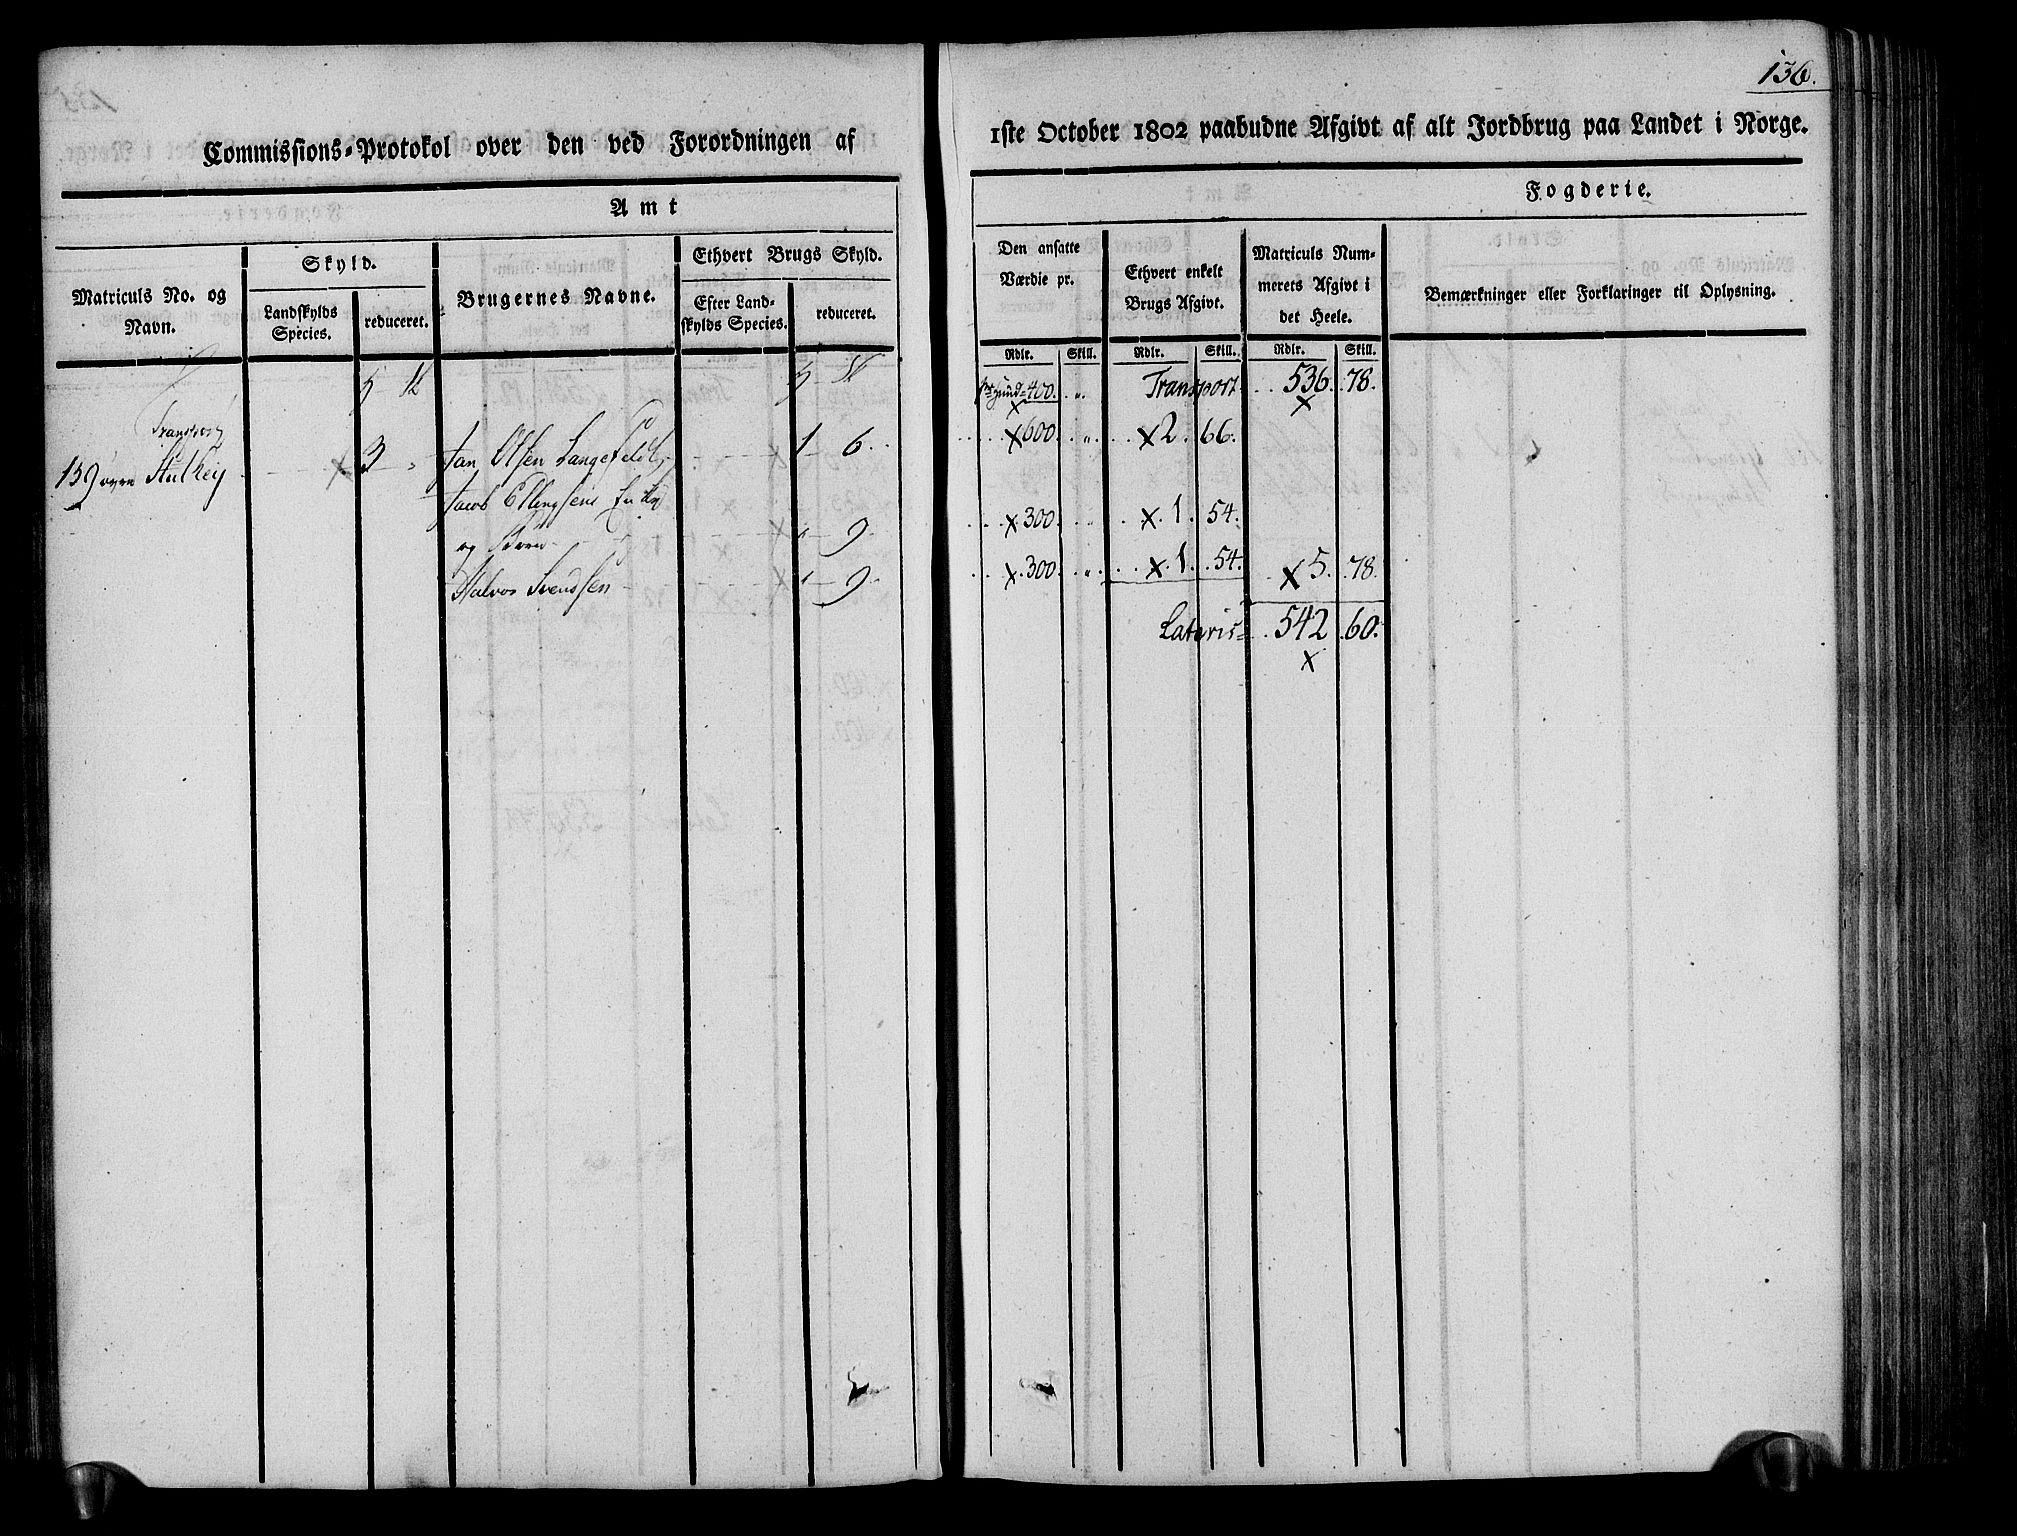 136.
Commissions-Protokol over den ved Forordningen af
1ste October 1802 paabudne Afgivt af alt Jordbrug paa Landet i Norge.
Amt
Fogderie.
Matriculs No. og Navn.
Skyld.
Landskylds Species.
reduceret.
Brugernes Navne.
Ethvert Brugs Skyld.
Efter Landskylds Species.
reduceret.
Den ansatte Værdie pr.
Ethvert enkelt Brugs Afgivt.
Matriculs Nummerets Afgivt i det Heele.
Bemærkninger eller Forklaringer til Oplysning.
Rdlr. Skill. Rdlr. Skill. Rdlr. Skill.
Transport
Hund 400. " Transport 536. 78.
159 øvre 3 " Jan Olsen Langefeldt 1 6 x 600. " x 2. 66.
Jacob Ellingsens Enke
og 9 x 300. x 1. 54.
Halvor Svendsen " 9 x 300. " x 1. 54. x 5. 78.
Lateris 542 60.